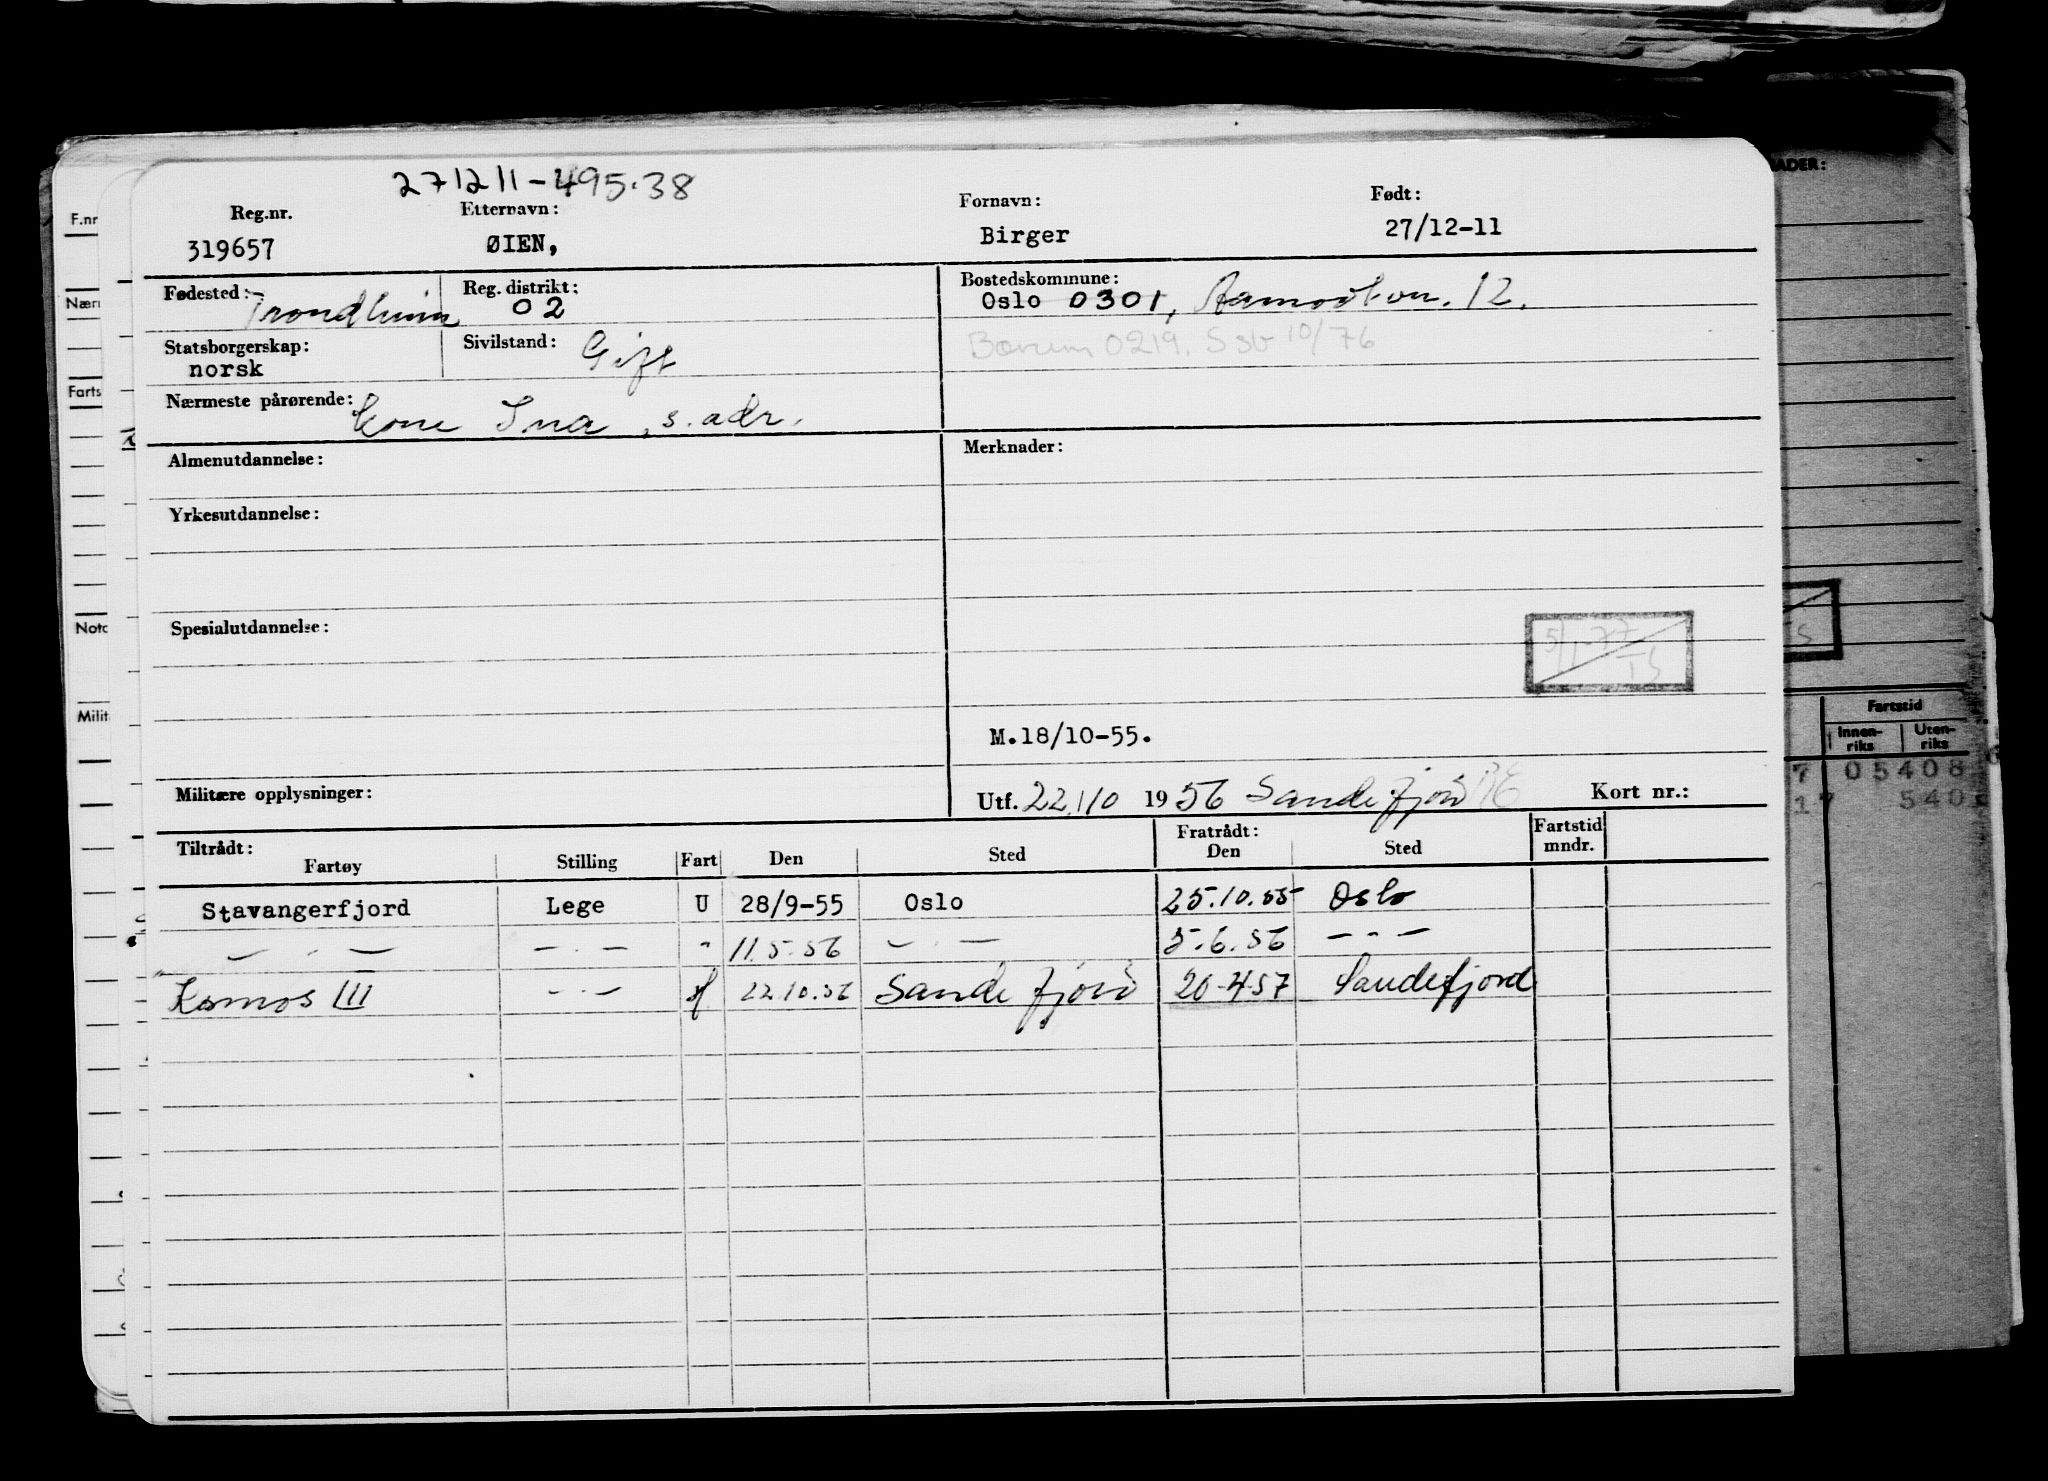 271211-495.38
Reg.nr. Etternavn: Fornavn: Født:
319657 ØIEN, Birger 27/12-11
Fødested: Trondheim Reg. distrikt: 02 Bostedskommune: Oslo 0301, 12.
Statsborgerskap: norsk Sivilstand: Gift
0219. Ssb 10/76
Nærmeste pårørende: Kone Ina, s. adr.
Almenutdannelse: Merknader:
Yrkesutdannelse:
Spesialutdannelse:
5/1-77
TS
M.18/10-55.
Militære opplysninger: Utf. 22/10 1956 Sandefjord Kort nr.:
Tiltrådt: Fratrådt: Fartstid
Fartøy Stilling Fart Den Sted Den Sted mndr.
Stavangerfjord Lege U 28/9-55 Oslo 25.10.55 Oslo
— . — — . — " 11.5.56 — . — 5.6.56 — - —
Kosmos III — . — H 22.10.56 Sandefjord 20-457 Sandefjord
F.nr
Nærr
Farts
Notc
Milit
ADER:
TS
Fartstid
Innen-riks Uten-riks
7 05408
17 540